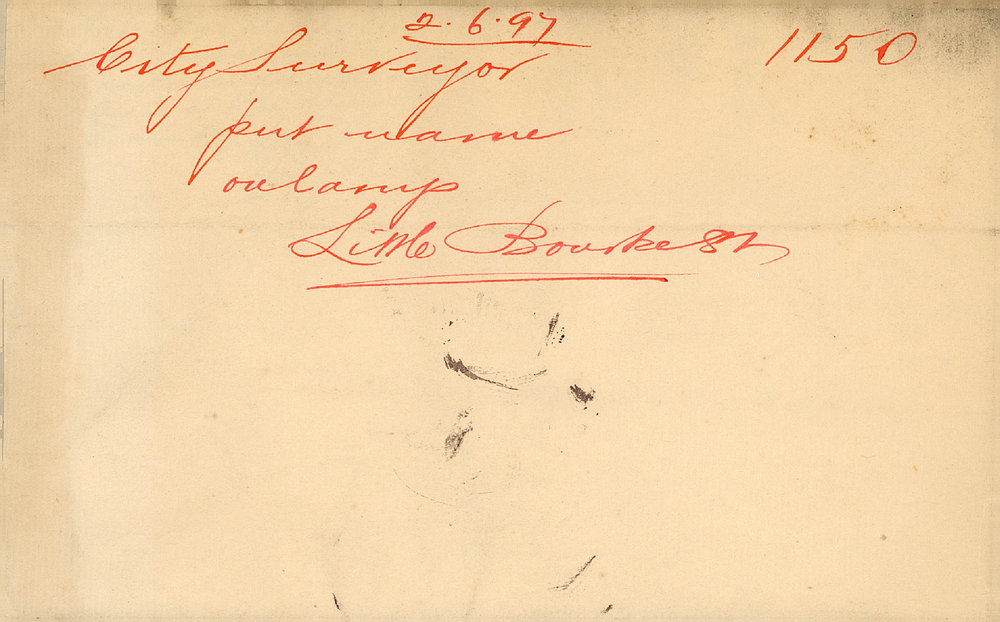 2.6.97
1150
City Surveyor
put name
on lamp
Little Bourke St